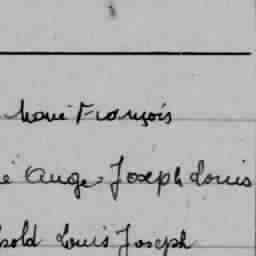 Marie François
é Ange Joseph Louis
pold Louis Joseph